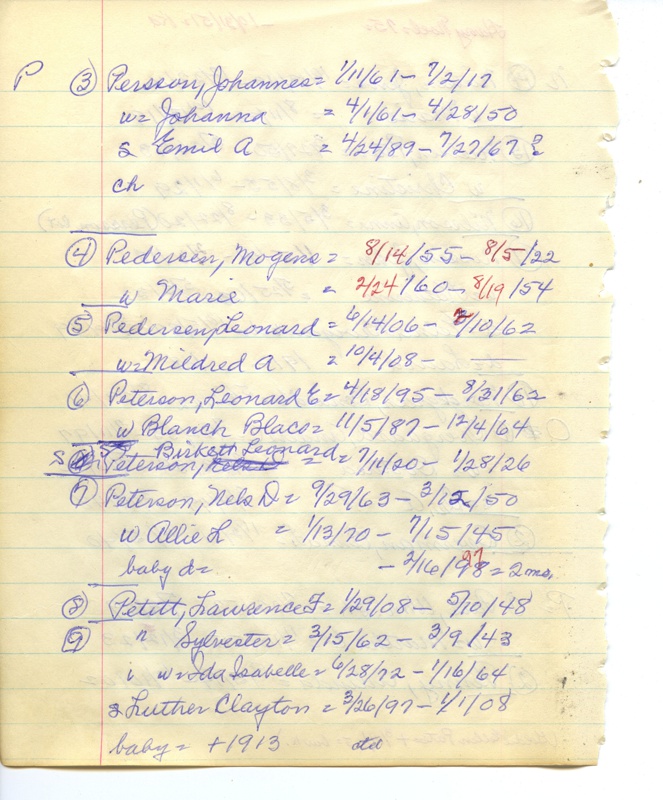 P ③ Persson, Johannes = 1/11/61 - 7/2/17
w = Johanna = 4/1/61 - 4/28/50
s Emil A = 4/24/89 - 7/27/67 ?
ch
④ Pedersen, Mogens = 8/14/55 - 8/5/22
w Marie = 2/24/60 - 8/19/54
⑤ Pedersen, Leonard = 6/14/06 - /10/62
w = Mildred A. = 10/4/08 -
⑥ Peterson, Leonard E = 4/18/95 - 8/21/62
w Blanch Blaco = 11/5/87 - 12/4/64
Birkett Leonard
S Peterson, = 7/11/20 - 1/28/26
⑦ Peterson, Nels D = 9/29/63 - 3/12/50
w Allie L = 1/13/70 - 7/15/45
baby d = - 2/16/97 = 2 mo.
⑧ Petitt, Lawrence F = 1/29/08 - 5/10/48
⑨ " Sylvester = 3/15/62 - 3/9/43
" w = Ida Isabelle = 6/28/72 - 1/16/64
s Luther Clayton = 3/26/97 - 1/1/08
baby = +1913